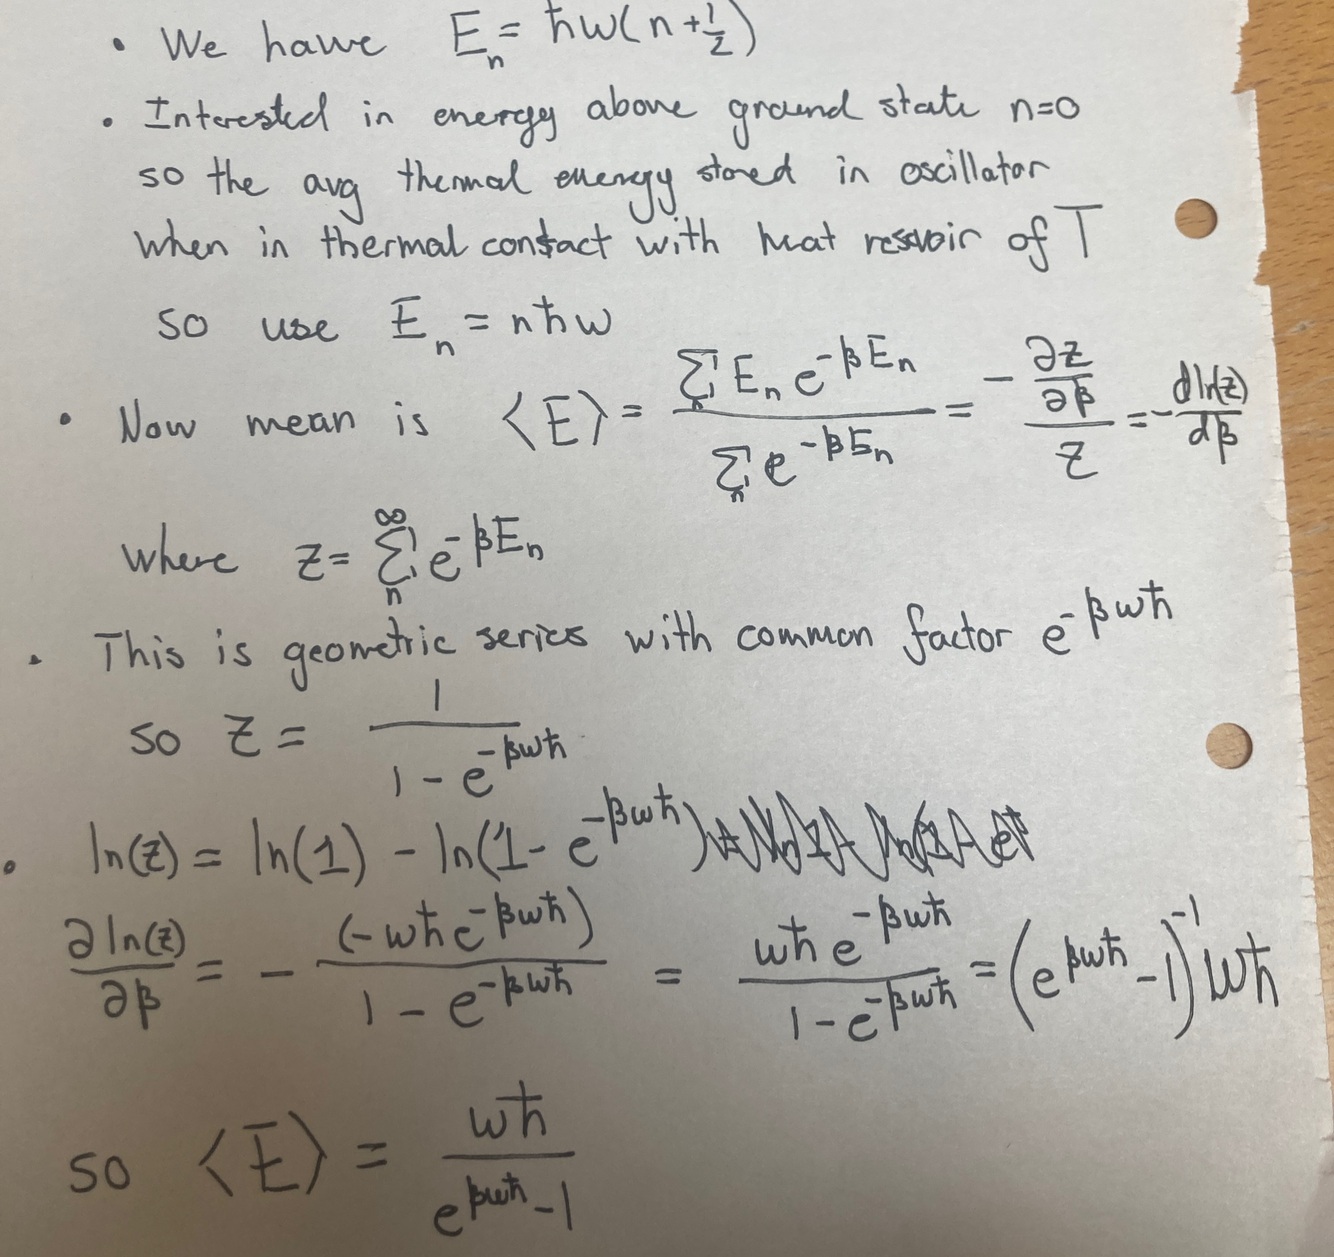 • We have E_n = ħw(n+1/2)
• Interested in energy above ground state n=0
so the avg thermal energy stored in oscillator
when in thermal contact with heat resevoir of T
so use E_n = nħw
• Now mean is ⟨E⟩ = (∑_n E_n e^{-βE_n})/(∑_n e^{-βE_n}) = -(∂z/∂β)/z = -dln(z)/dβ
where z = ∑_n^∞ e^{-βE_n}
• This is geometric series with common factor e^{-βwħ}
so z = 1/(1 - e^{-βwħ})
• ln(z) = ln(1) - ln(1 - e^{-βwħ})
∂ln(z)/∂β = -(-wħe^{-βwħ})/(1 - e^{-βwħ}) = wħe^{-βwħ}/(1 - e^{-βwħ}) = (e^{βwħ} - 1)^{-1} wħ
so ⟨E⟩ = wħ/(e^{βwħ} - 1)